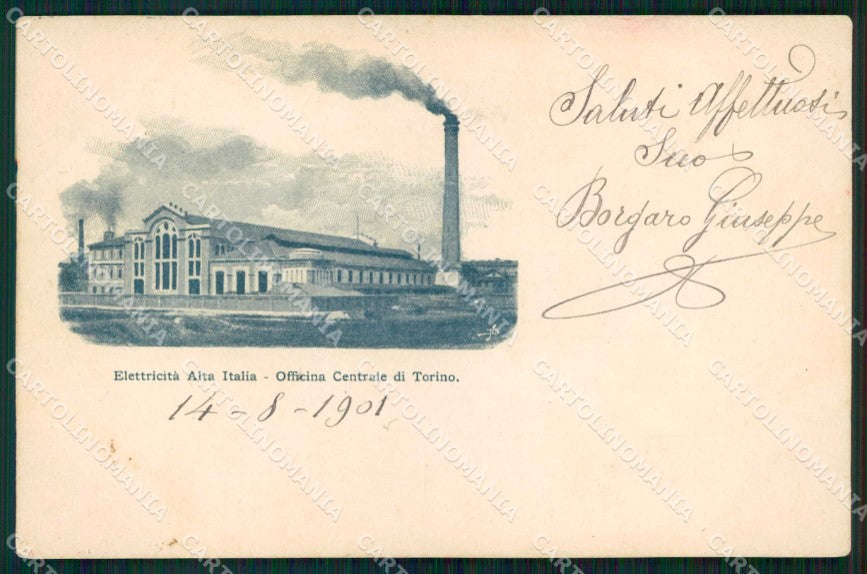 Saluti Affettuosi
Suo
Borgaro Giuseppe
Elettricità Alta Italia - Officina Centrale di Torino.
14-8-1901
CARTOLINOMANIA